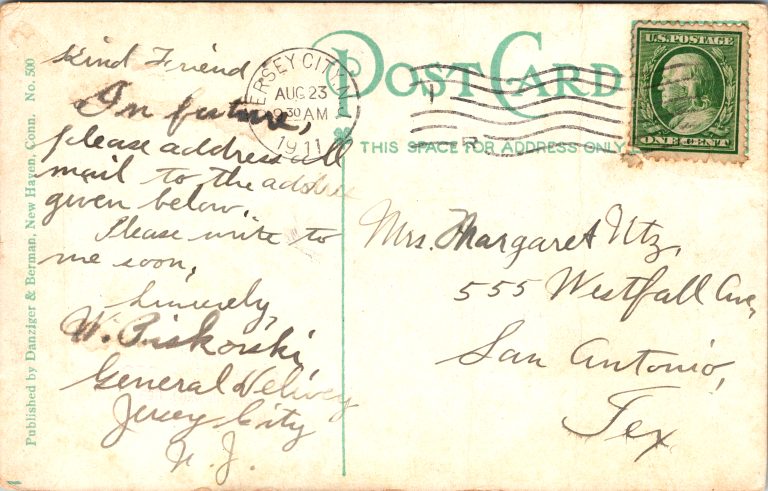 Published by Danziger & Berman, New Haven, Conn. No. 500
Kind Friend
In future,
please address all
mail to the address
given below.
Please write to
me soon,
Sincerely,
W. Piskorski
General Delivery
Jersey City
N. J.
JERSEY CITY, N.J.
AUG 23
9 30 AM
1911
POST CARD
THIS SPACE FOR ADDRESS ONLY
U.S. POSTAGE
ONE CENT
Mrs. Margaret Utz,
555 Westfall Ave,
San Antonio,
Tex